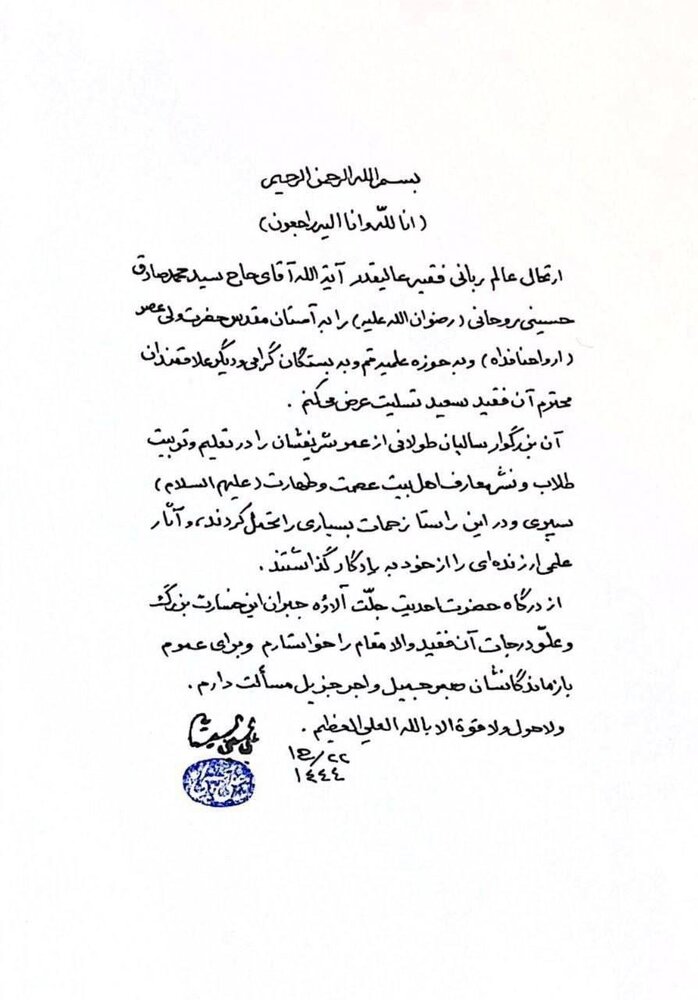 بسم الله الرحمن الرحیم
(انا لله وانا الیه راجعون)
ارتحال عالم ربانی فقیه عالیقدر آیة الله آقای حاج سید محمد صادق
حسینی روحانی (رضوان الله علیه) را به آستان مقدس حضرت ولی عصر
(ارواحنا فداه) وبه حوزه علمیه قم وبه بستگان گرامی ودیگر علاقمندان
محترم آن فقید سعید تسلیت عرض میکنم .
آن بزرگوار سالیان طولانی از عمر شریفشان را در تعلیم وتربیت
طلاب ونشر معارف اهل بیت عصمت وطهارت (علیهم السلام)
سپری ودر این راستا زحمات بسیاری را تحمل کردند، وآثار
علمی ارزنده ای را از خود به یادگار گذاشتند .
از درگاه حضرت احدیت جلّت آلاؤه جبران این خسارت بزرگ
وعلوّ درجات آن فقید والا مقام را خواستارم وبرای عموم
بازماندگانشان صبر جمیل واجر جزیل مسألت دارم .
ولا حول ولا قوة الا بالله العلي العظیم .
علي الحسيني السيستاني
٢٢/ع١
١٤٤٤